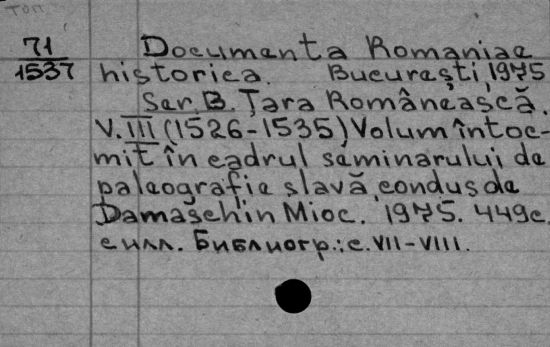 Топ
71 Documenta Romaniae
1537 historica. București, 1975
Ser. B. Țara Românească.
V. III (1526-1535) Volum întoc-
mit în cadrul seminarului de
paleografie slavă, condus de
Damaschin Mioc. 1975. 449 с.
с илл. Библиогр.: с. VII-VIII.